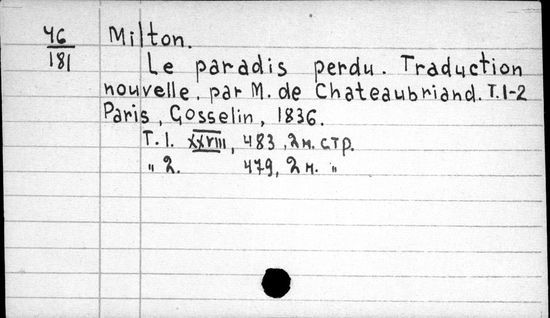 46
181
Milton.
Le paradis perdu. Traduction
nouvelle, par M. de Chateaubriand. T.1-2
Paris, Gosselin, 1836.
T. 1. XXVIII, 483, 2 н. стр.
„ 2. 479, 2 н. „